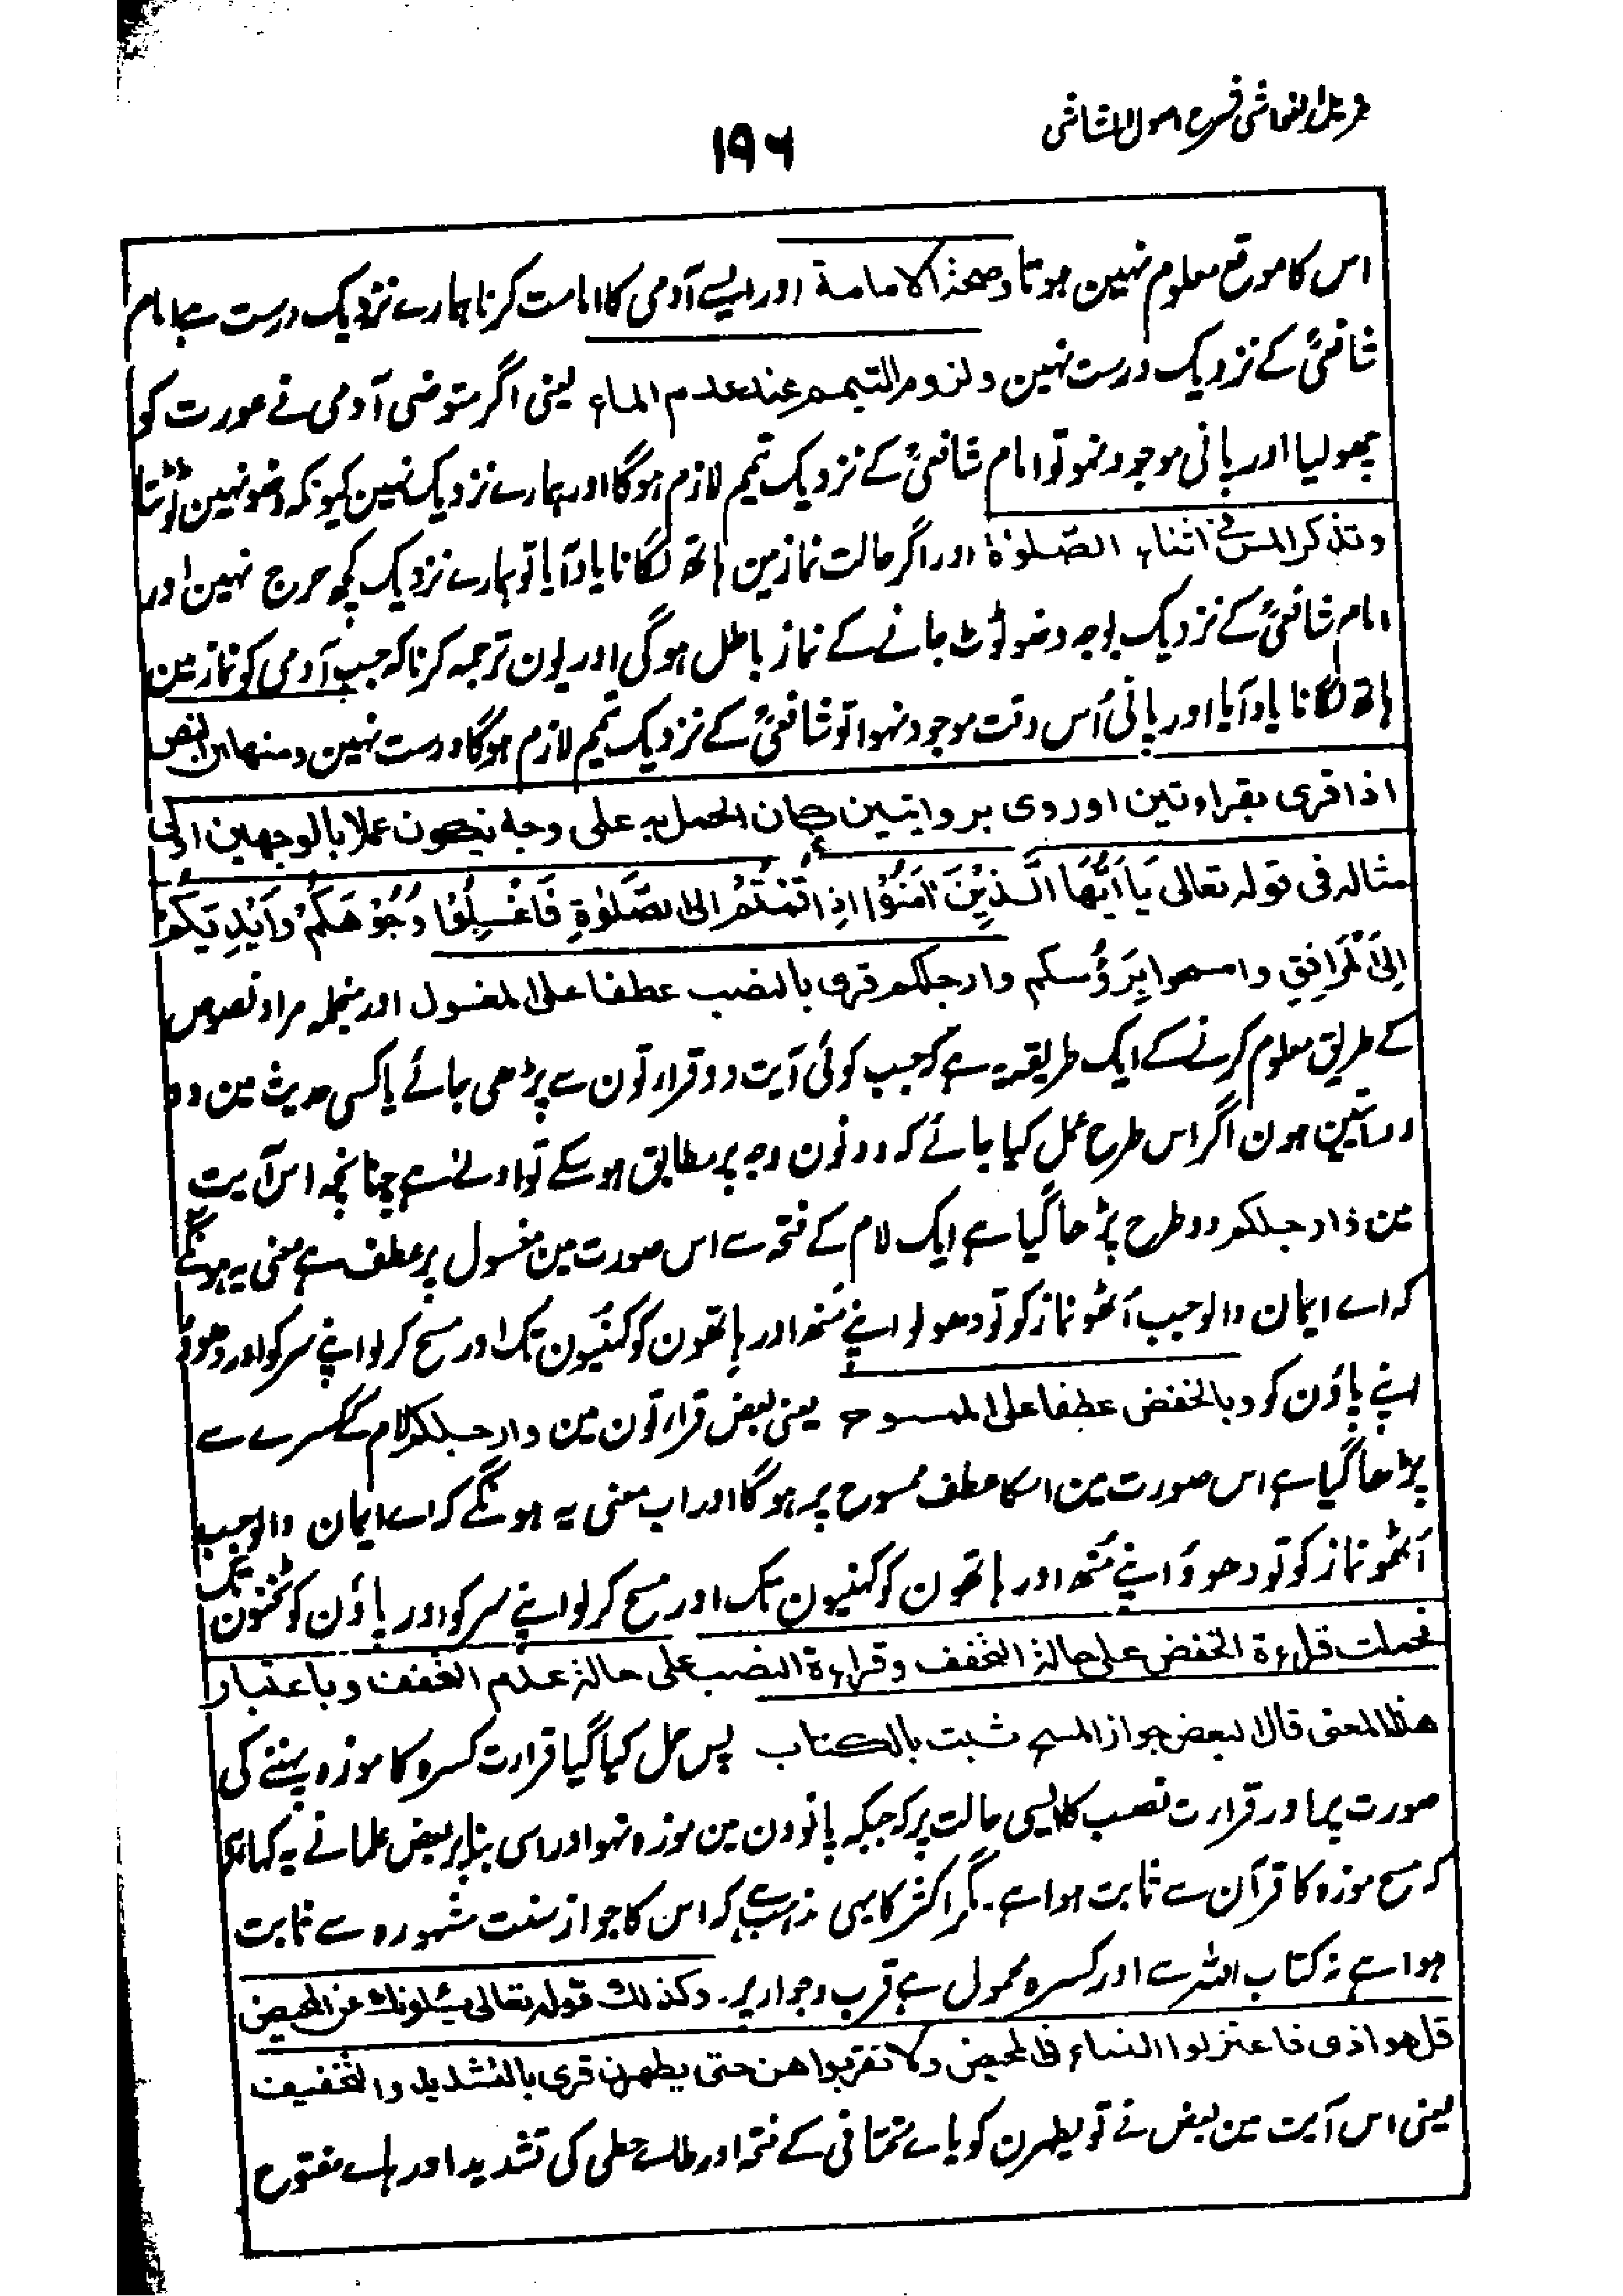 مزیل الغواشی شرح اصول الشاشی
۱۹۶
اس کا موقع معلوم نہین ہوتا وصحۃ الامامۃ اور ایسے آدمی کا امامت کرنا ہمارے نزدیک درست ہے امام
شافعیؒ کے نزدیک درست نہین ولزوم التیمم عند عدم الماء یعنی اگر متوضی آدمی نے عورت کو
چھولیا اور پانی موجود نہو تو امام شافعیؒ کے نزدیک تیمم لازم ہوگا اور ہمارے نزدیک نہین کیونکہ وضو نہین ٹوٹتا
وتذکر المس فی اثناء الصّلوٰۃ اور اگر حالت نماز مین ہاتھ لگانا یاد آیا تو ہمارے نزدیک کچھ حرج نہین اور
امام شافعیؒ کے نزدیک بوجہ وضو ٹوٹ جانے کے نماز باطل ہوگی اور یون ترجمہ کرنا کہ جب آدمی کو نماز مین
ہاتھ لگانا یاد آیا اور پانی اُس وقت موجود نہوا تو شافعیؒ کے نزدیک تیمم لازم ہوگا درست نہین ومنھا ان النص
اذا قری بقراءتین اوروی بروایتین کان العمل بہ علی وجہ یکون عملا بالوجھین اولی
مثالہ فی قولہ تعالی یَا اَیُّھَا الَّذِیْنَ اٰمَنُوْا اِذَا قُمْتُمْ اِلَی الصَّلوٰۃِ فَاغْسِلُوْا وُجُوْھَکُمْ وَاَیْدِیَکُمْ
اِلَی الْمَرَافِقِ وامسحوا بِرَؤُسکم وارجلکم قری بالنصب عطفا علی المغسول اور منجملہ مراد نصوص
کے طریق معلوم کرنے کے ایک طریقہ یہ ہے کہ جب کوئی آیت دو قرارتون سے پڑھی جائے یا کسی حدیث مین دو
روایتین ہون اگر اس طرح عمل کیا جائے کہ دونون وجہ پر مطابق ہوسکے تو اولے ہے چنانچہ اس آیت
مین وارجلکم دو طرح پڑھا گیا ہے ایک لام کے فتحہ سے اس صورت مین مغسول پر عطف ہے معنی یہ ہونگے
کہ اے ایمان والو جب اُٹھو نماز کو تو دھولو اپنے مُنھ اور ہاتھون کو کہنیون تک اور مسح کرلو اپنے سر کو اور دھوؤ
اپنے پاؤن کو وبالخفض عطفا علی الممسوح یعنی بعض قرارتون مین وارجلکم لام کے کسرے سے
پڑھا گیا ہے اس صورت مین اسکا عطف ممسوح پر ہوگا اور اب معنی یہ ہونگے کہ اے ایمان والو جب
اُٹھو نماز کو تو دھوؤ اپنے مُنھ اور ہاتھون کو کہنیون تک اور مسح کرلو اپنے سر کو اور پاؤن کو ٹخنون تک
فحملت قراءۃ الخفض علی حالۃ التخفف وقراءۃ النصب علی حالۃ عدم التخفف وباعتبار
ھذا المعنی قال البعض جواز المسح ثبت بالکتاب پس حمل کیا گیا قرارت کسرہ کا موزہ پہننے کی
صورت پر اور قرارت نصب کا ایسی حالت پر کہ جبکہ پانوون مین موزہ نہو اور اسی بنا پر بعض علما نے یہ کہا ہے
کہ مسح موزہ کا قرآن سے ثابت ہوا ہے۔ مگر اکثر کا یہی مذہب ہے کہ اس کا جواز سنت مشہورہ سے ثابت
ہوا ہے نہ کتاب اللہ سے اور کسرہ محمول ہے قرب وجوار پر۔ وکذلک قولہ تعالی یسئلونک عن المحیض
قل ھو اذی فاعتزلوا النساء فی المحیض ولا تقربوا ھن حتی یطھرن قری بالتشدید والتخفیف
یعنی اس آیت مین بعض نے تو یطہرن کو یاے تحتانی کے فتحہ اور طاے حطی کی تشدید اور ہاے مفتوح